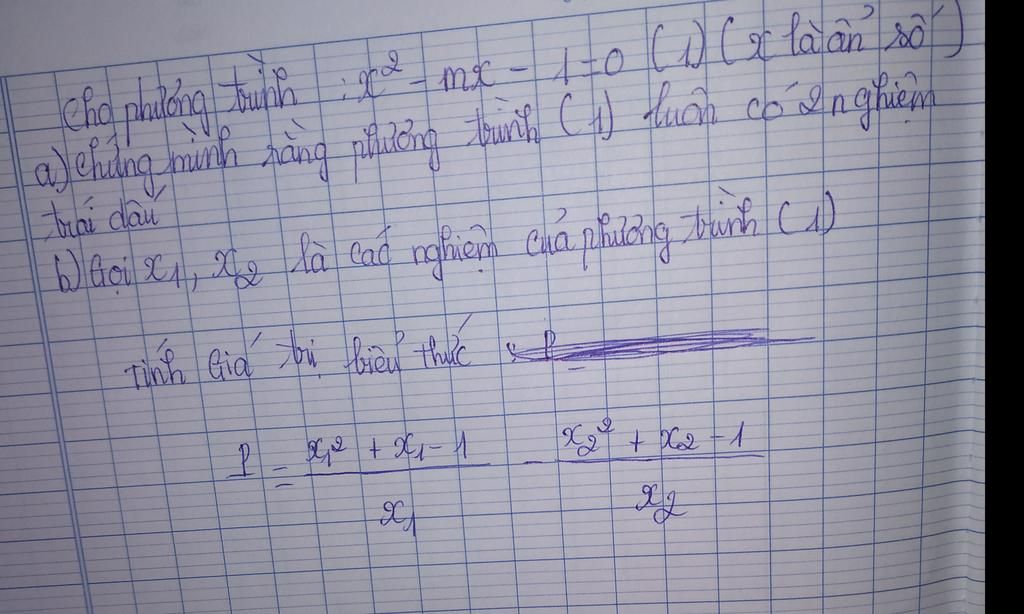 Cho phương trình : x² - mx - 1 = 0 (1) (x là ẩn số)
a) Chứng minh rằng phương trình (1) luôn có 2 nghiệm
trái dấu
b) Gọi x₁, x₂ là các nghiệm của phương trình (1)
Tính Giá trị biểu thức
P = (x₁² + x₁ - 1)/x₁ - (x₂² + x₂ - 1)/x₂